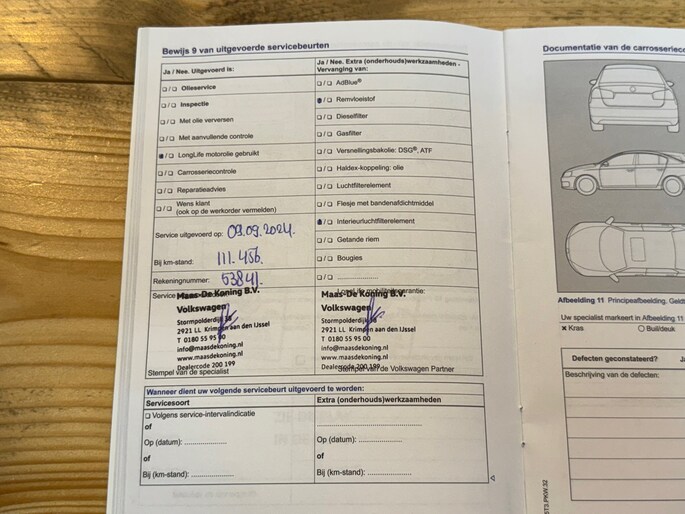 Bewijs 9 van uitgevoerde servicebeurten
Ja / Nee. Uitgevoerd is:
❑ / ❑ Olieservice
❑ / ❑ Inspectie
❑ / ❑ Met olie verversen
❑ / ❑ Met aanvullende controle
■ / ❑ LongLife motorolie gebruikt
❑ / ❑ Carrosseriecontrole
❑ / ❑ Reparatieadvies
❑ / ❑ Wens klant
(ook op de werkorder vermelden)
Service uitgevoerd op: 09.09.2024.
Bij km-stand: 111.456.
Rekeningnummer: 53841.
Ja / Nee. Extra (onderhouds)werkzaamheden -
Vervanging van:
❑ / ❑ AdBlue®
■ / ❑ Remvloeistof
❑ / ❑ Dieselfilter
❑ / ❑ Gasfilter
❑ / ❑ Versnellingsbakolie: DSG®, ATF
❑ / ❑ Haldex-koppeling: olie
❑ / ❑ Luchtfilterelement
❑ / ❑ Flesje met bandenafdichtmiddel
■ / ❑ Interieurluchtfilterelement
❑ / ❑ Getande riem
❑ / ❑ Bougies
❑ / ❑ ....................
Service
Maas-De Koning B.V.
Volkswagen
Stormpolderdijk
2921 LL Krimpen aan den IJssel
T 0180 55 95 00
info@maasdekoning.nl
www.maasdekoning.nl
Dealercode 200 199
Stempel van de specialist
LongLife mobiliteitsgarantie:
Maas-De Koning B.V.
Volkswagen
Stormpolderdijk
2921 LL Krimpen aan den IJssel
T 0180 55 95
info@maasdekoning.nl
www.maasdekoning.nl
Dealercode 200 199
Stempel van de Volkswagen Partner
Wanneer dient uw volgende servicebeurt uitgevoerd te worden:
Servicesoort
❑ Volgens service-intervalindicatie
of
Op (datum): ...................
of
Bij (km-stand): ...................
Extra (onderhouds)werkzaamheden
...................................
Op (datum): ...................
of
Bij (km-stand): ...................
Documentatie van de carrosserieco
Afbeelding 11 Principeafbeelding. Geldt
Uw specialist markeert in Afbeelding 11
× Kras
○ Buil/deuk
Defecten geconstateerd? Ja
Beschrijving van de defecten:
ST3.PKW.32